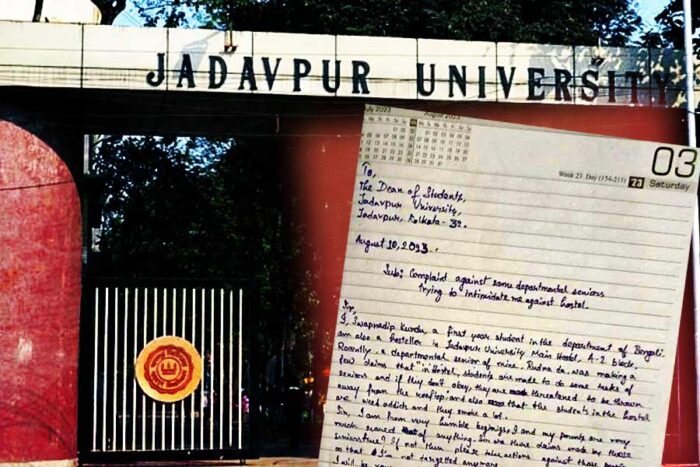 JADAVPUR UNIVERSITY
July 2023
August 2023
03
Week 23 Day (154-211) 23 Saturday
To,
The Dean of Students,
Jadavpur University,
Jadavpur, Kolkata - 32.
August 10, 2023.
Sub: Complaint against some departmental seniors
trying to intimidate me against hostel.
Sir,
I, Swapnadip Kundu, a first year student in the department of Bengali,
am also a hosteller in Jadavpur University Main Hostel, A-2 block.
Recently, a departmental senior of mine, Rudra da was making a
few claims that "in hostel, students are made to do some tasks of
seniors and if they don't obey, they are threatened to be thrown
away from the rooftop and also that the students in the hostel
are weed addicts and they smoke a lot.
Sir, I am from very humble beginings, and my parents are very
much scared of anything. Sir are there claims made by those
seniors true? If not then please take actions against them
so that I'm not targetted anymore.